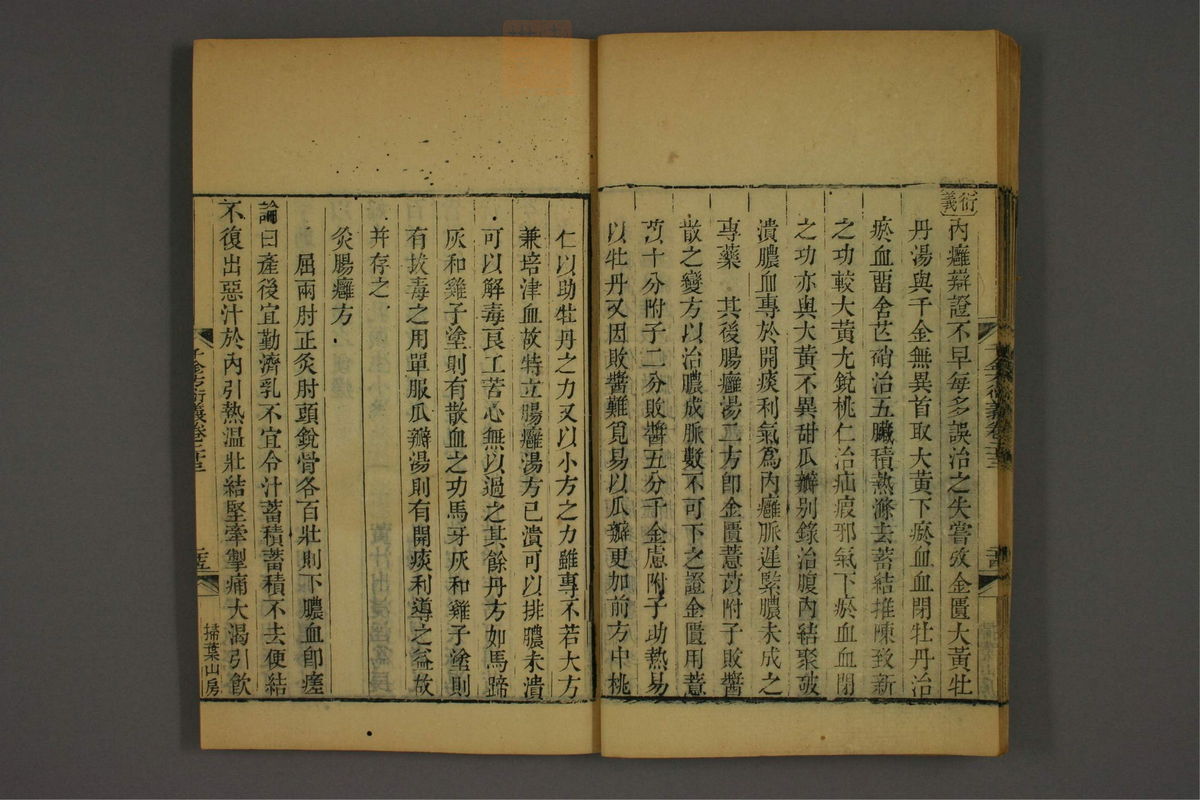 衍義
內癰辯證不早每多誤治之失嘗攷金匱大黃牡
丹湯與千金無異首取大黃下瘀血血閉牡丹治
瘀血畱舍芒硝治五臟積熱滌去蓄結推陳致新
之功較大黃尤銳桃仁治疝瘕邪氣下瘀血血閉
之功亦與大黃不異甜瓜瓣別錄治腹內結聚破
潰膿血專於開痰利氣爲內癰脈遲緊膿未成之
專藥 其後腸癰湯二方卽金匱薏苡附子敗醬
散之變方以治膿成脈數不可下之證金匱用薏
苡十分附子二分敗醬五分千金慮附子助熱易
以牡丹又因敗醬難覓易以瓜瓣更加前方中桃
千金方衍義卷二十三
仁以助牡丹之力又以小方之力雖專不若大方
兼培津血故特立腸癰湯方已潰可以排膿未潰
可以解毒良工苦心無以過之其餘丹方如馬蹄
灰和雞子塗則有散血之功馬牙灰和雞子塗則
有拔毒之用單服瓜瓣湯則有開痰利導之益故
并存之
灸腸癰方
屈兩肘正灸肘頭銳骨各百壯則下膿血卽瘥
論曰產後宜勤濟乳不宜令汁蓄積蓄積不去便結
不復出惡汁於內引熱溫壯結堅牽掣痛大渴引飮
千金方衍義卷二十三
掃葉山房